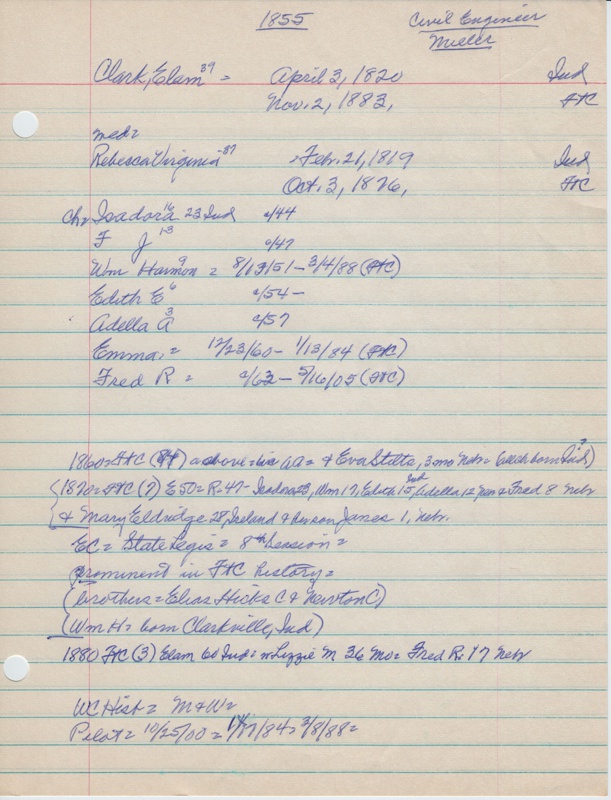 1855 Civil Engineer
Miller
Clark, Elam 39 = April 3, 1820 Ind
Nov. 2, 1883, FtC
med=
Rebecca Virginia 37 = Feb. 21, 1819 Ind
Oct. 3, 1876, FtC
ch= Isadora 16 23 Ind c/44
F J 13 c/47
Wm Harmon 9 = 8/13/51 - 3/4/88 (FtC)
Edith E 6 c/54 -
Adella A 3 c/57
Emma, = 12/23/60 - 1/13/84 (FtC)
Fred R = c/62 - 5/16/05 (FtC)
1860= FtC as above = & Eva Stilts, 3 mo Nebr= born Ind)
1870= FtC (7) E 50= R. 47- Isadora 23, Wm 17, Edith 15 Ind, Adella 12 & Fred 8 Nebr
& Mary Eldridge 28, Ireland & her son James 1, Nebr.
EC= State Legis= 8th Session=
prominent in FtC history=
(brothers= Elias Hicks C & Newton C)
(Wm H= born Clarkville, Ind)
1880 FtC (3) Elam 60 Ind= w Lizzie M 36 Mo= Fred R. 17 Nebr
WC Hist= M&W=
Pilot= 10/25/00= 1/17/84= 3/8/88=